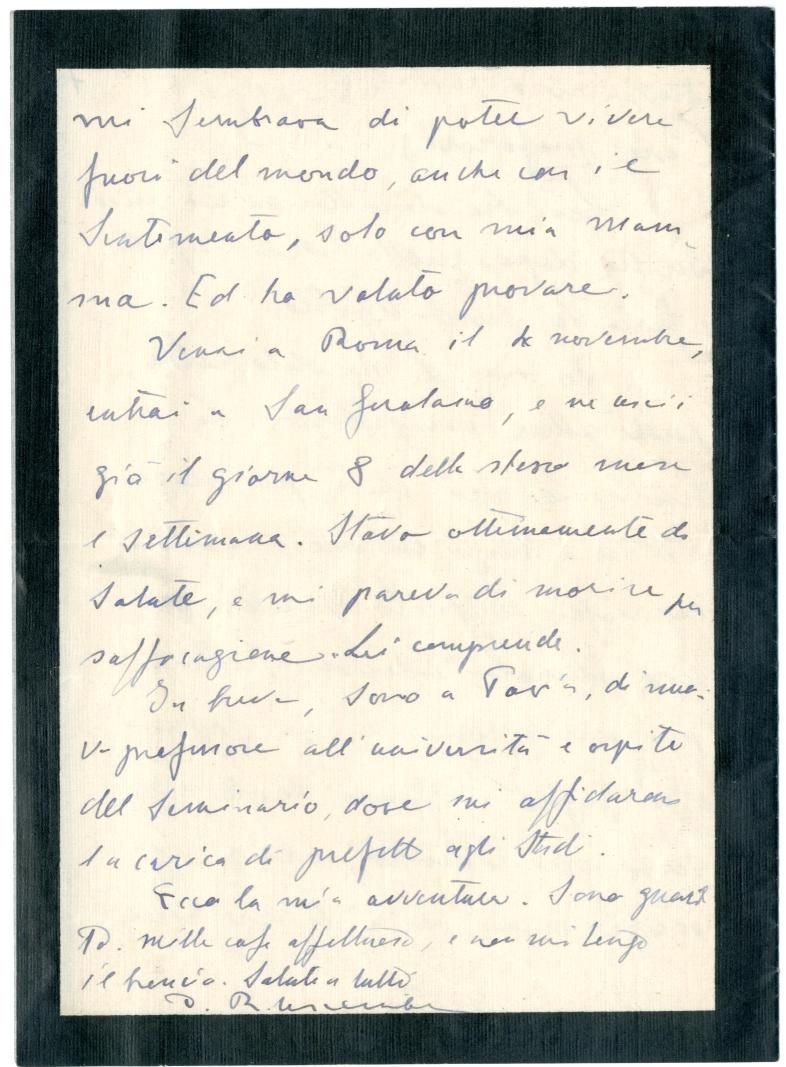 mi sembrava di poter vivere
fuori del mondo, anche con il
sentimento, solo con mia mam-
ma. Ed ho voluto provare.
Venni a Roma il 4 novembre,
entrai a San Girolamo, e ne uscii
già il giorno 8 dello stesso mese
e settimana. Stavo ottimamente di
salute, e mi pareva di morire per
soffocazione. Lei comprende.
In breve, sono a Pavia, di nuo-
vo professore all'università e ospite
del Seminario, dove mi affidarono
la carica di prefetto agli Studi.
Ecco la mia avventura. Sono
D. mille cose affettuose, e non mi tengo
il broncio. Saluti a tutti
D.